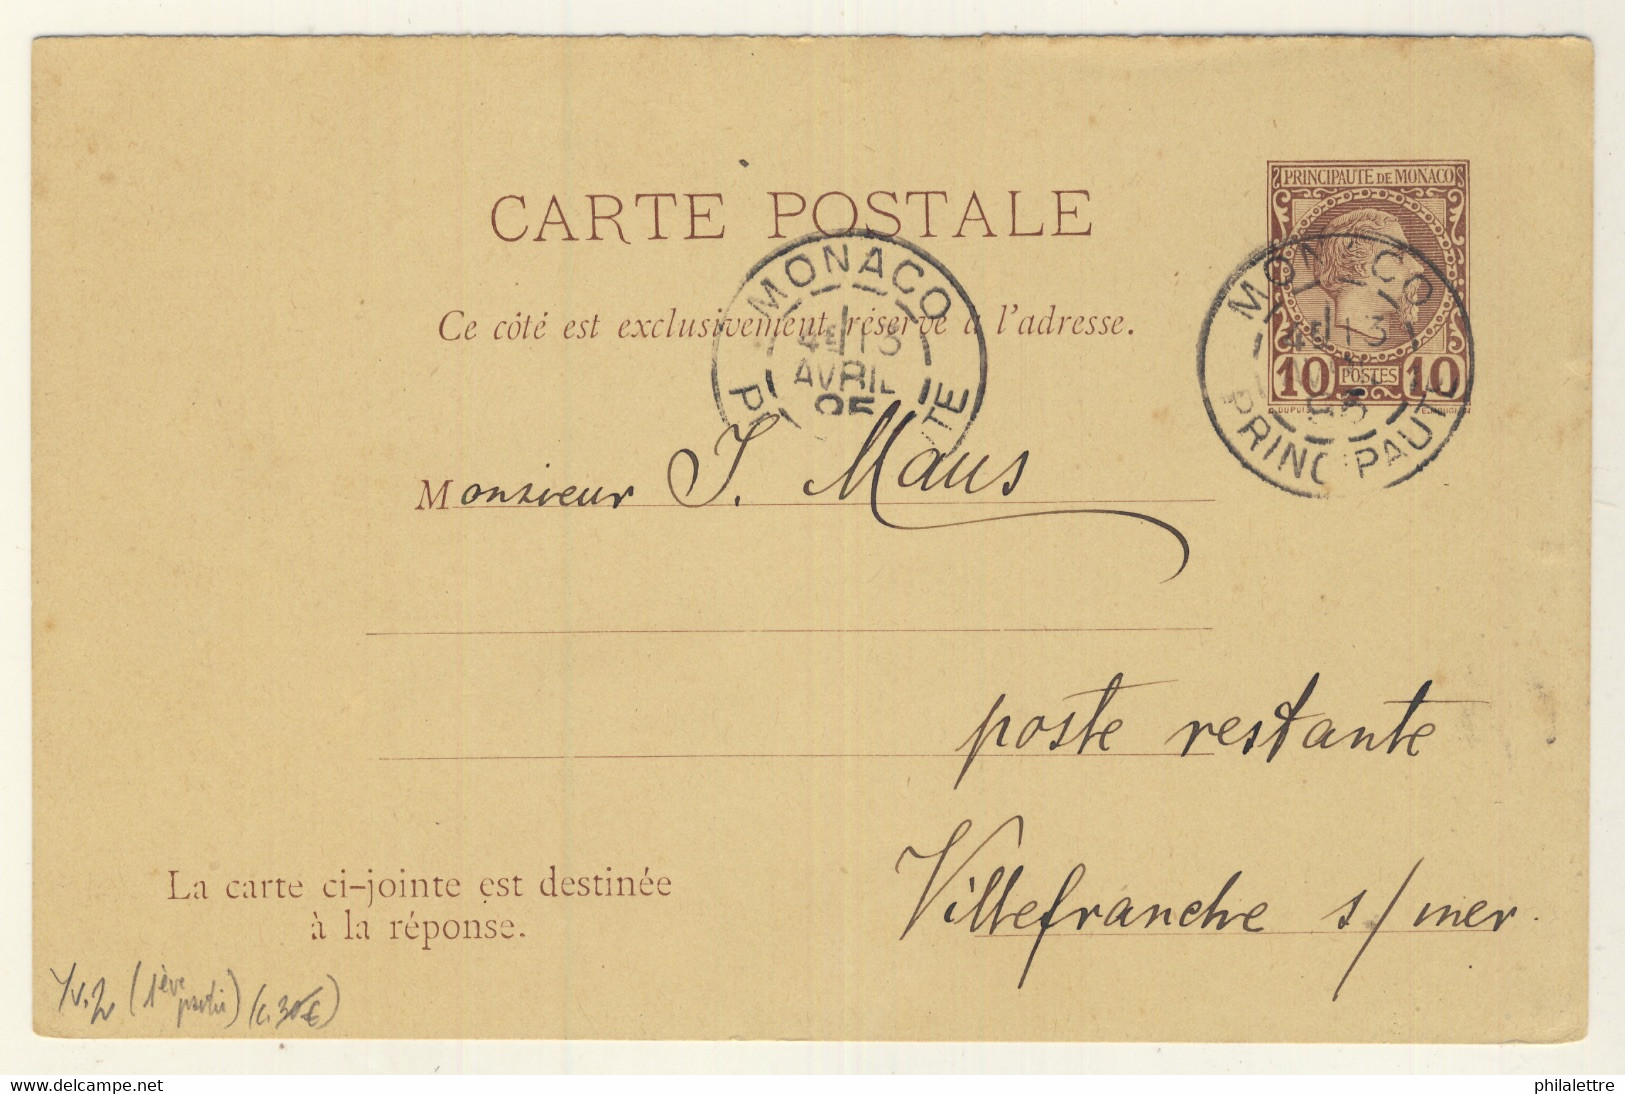 PRINCIPAUTE DE MONACO
CARTE POSTALE
MONACO
4E 13
AVRIL
95
MONACO
4E 13
95
PRINCIPAUTE
10 POSTES 10
Ce côté est exclusivement réservé à l'adresse.
Monsieur J. Maus
poste restante
Villefranche s/mer.
La carte ci-jointe est destinée
à la réponse.
Yv. 2 (1ève partie) (c. 30€)
www.delcampe.net
philalettre